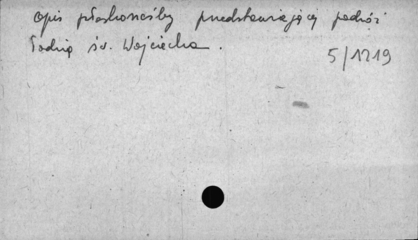 opis płaskorzeźby przedstawiającej podróż
łodzią św. Wojciecha.
5/1219